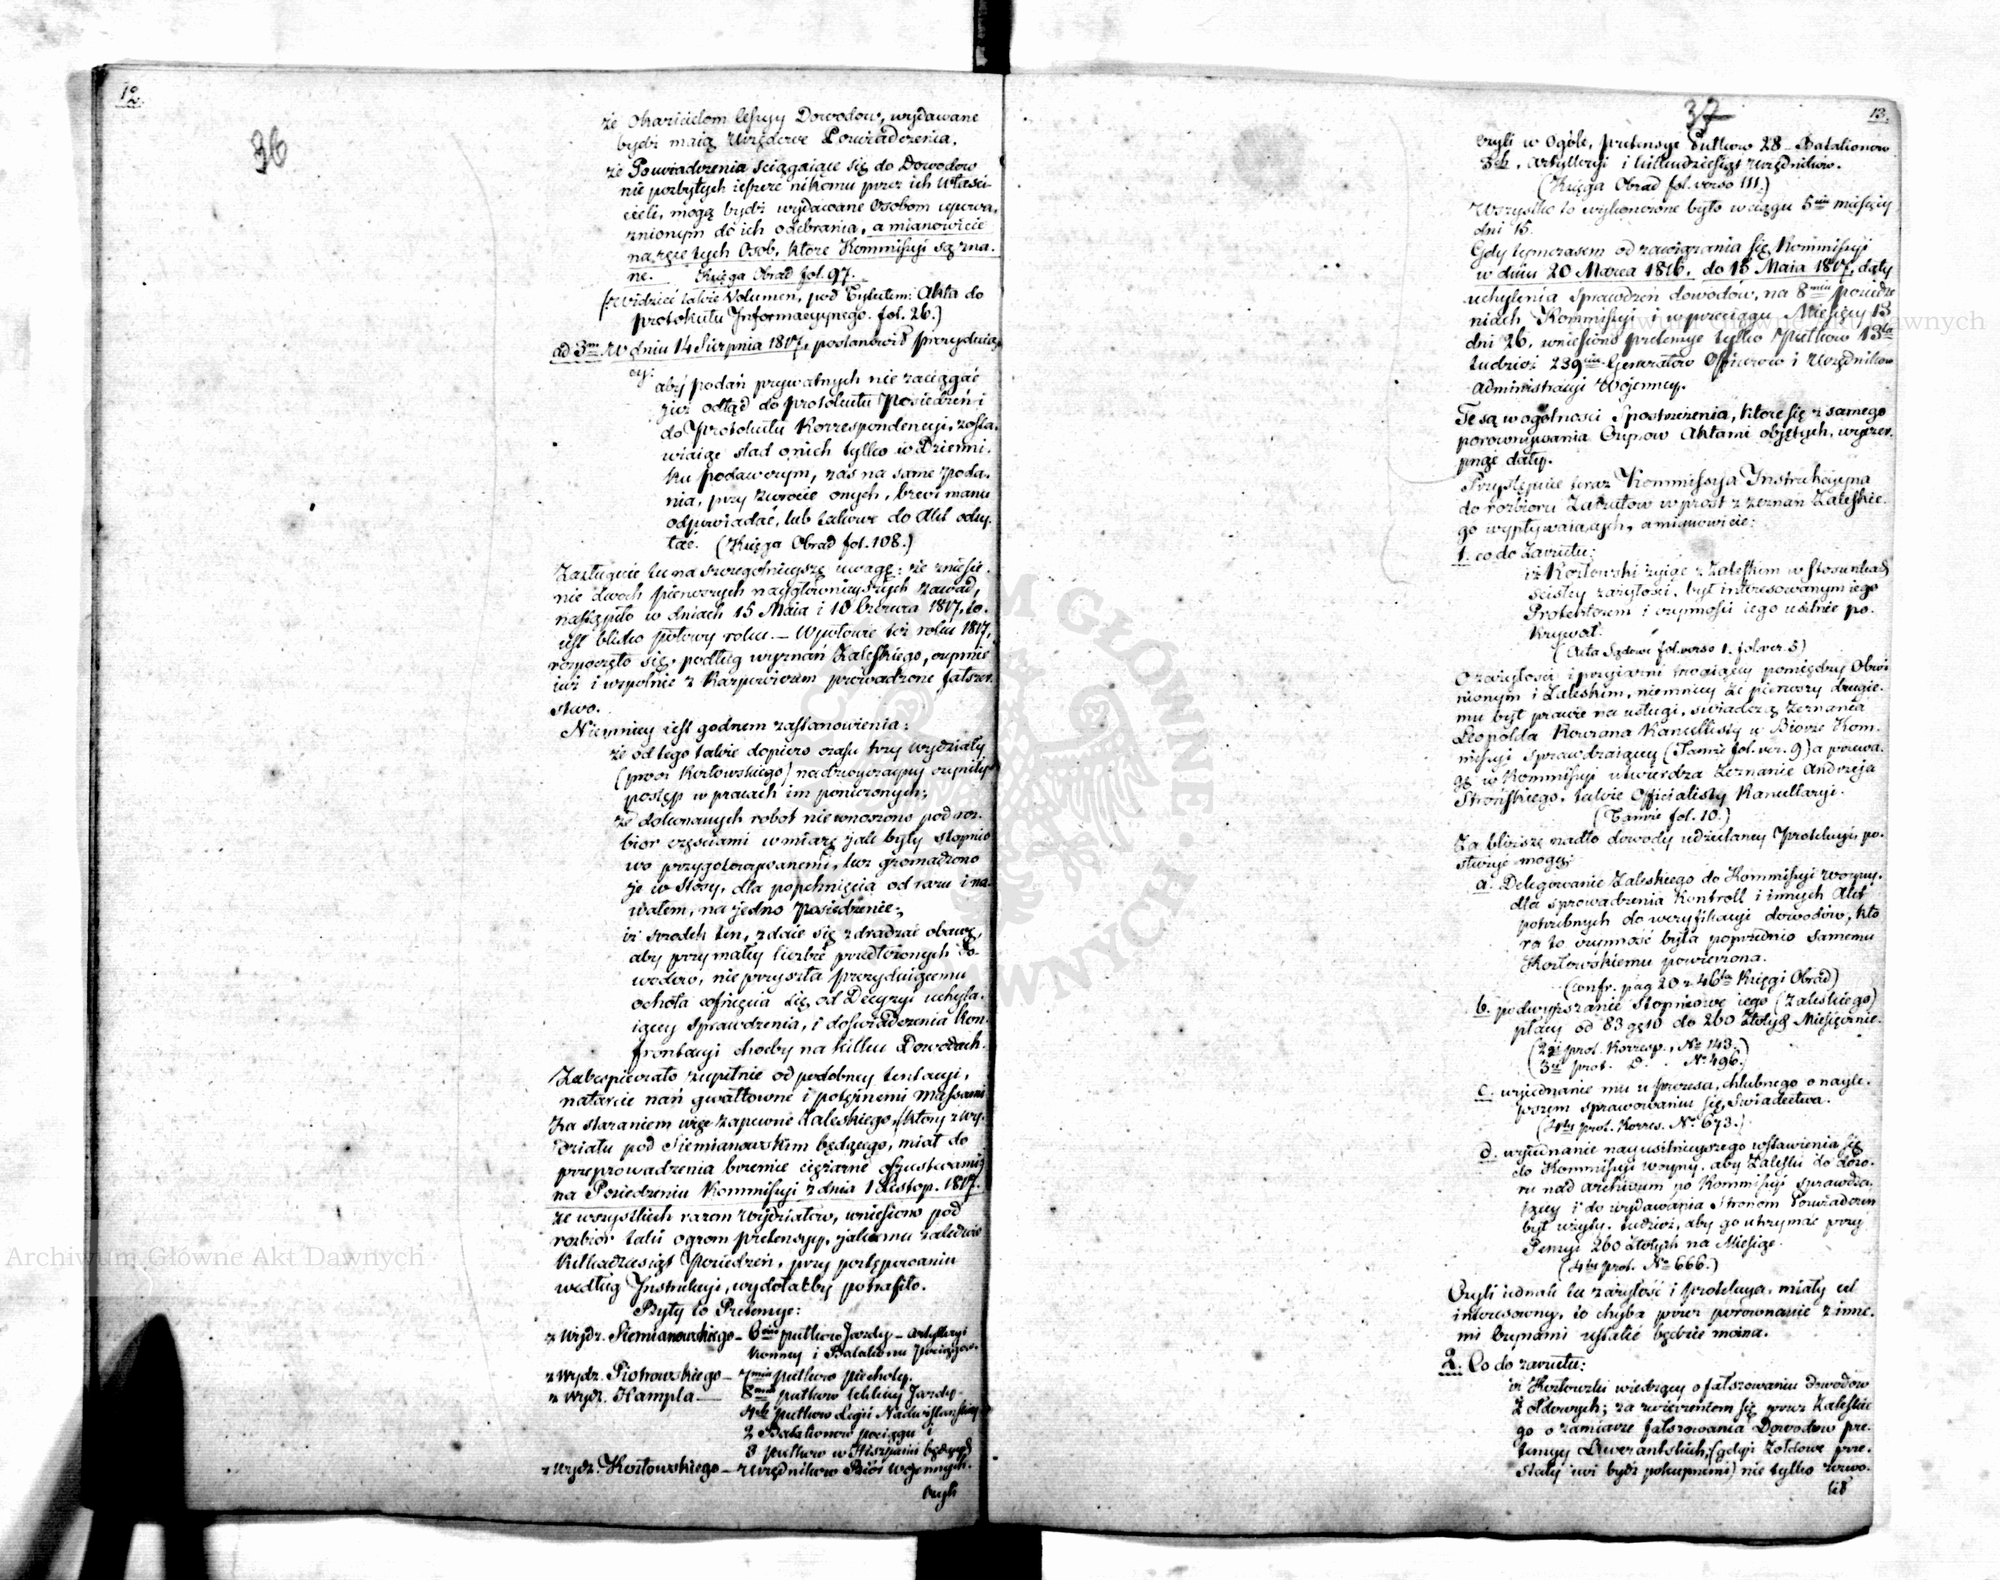 12.
36
że okazicielom cessyy Dowodow, wydawane
bydź maią Urzędowe Poswiadczenia.
że Poswiadczenia sciągaiące się do Dowodow
nie pozbytych ieszcze nikomu przez ich Właści-
cieli, mogą bydź wydawane Osobom upowa-
żnionym do ich odebrania, a mianowicie
na ręce tych Osob, które Kommissyi są zna-
ne. Księga Obrad fol. 97.
(: Widzieć także Volumen, pod Tytułem: Akta do
protokułu Informacyjnego. fol. 26.)
ad 3m. W dniu 14 Sierpnia 1817, postanowił Prezyduią-
cy:
aby podań prywatnych nie zaciągać
już odtąd do protokułu Posiedzeń i
do Protokułu Korrespondencyi, zosta-
wiaiąc slad o nich tylko w Dzienni-
ku podawczym, zaś na same Poda-
nia, przy zwrocie onych, brevi manu
odpowiadać, lub takowe do Akt odsy-
łać. (Księga Obrad fol. 108.)
Zasługuie tu na szczegolnieyszą uwagę: że zniesie-
nie dwoch pierwszych naygłównieyszych zawad,
nastąpiło w dniach 15 Maia i 10 Czerwca 1817, to-
iest blisko połowy roku. — W połowie też roku 1817,
rozpoczęło się, podług wyznań Zaleskiego, czynnie
iuż i wspolnie z Karpowiczem prowadzone fałszer-
stwo.
Niemniey iest godnem zastanowienia:
że od tego także dopiero czasu trzy wydziały
(procz Kozłowskiego) nadzwyczayny czyniły
postęp w pracach im poruczonych;
że dokonanych robot nie wnoszono pod roz-
biór częściami w miarę jak były stopnio-
wo przygotowywanemi, lecz gromadzono
je w stosy, dla popchnięcia od razu i na-
wałem, na jedno Posiedzenie;
iż srodek ten, zdaie się zdradzać obawę,
aby przy małey liczbie przedłożonych Do-
wodow, nie przyszła Prezyduiącemu
ochota cofnięcia się od Decyzyi uchyla-
iącey sprawdzenia, i doswiadczenia kon-
frontacyi choćby na kilku Dowodach.
Zabespieczało zupełnie od podobney tentacyi,
natarcie nań gwałtowne i potężnemi massami
Za staraniem więc zapewne Zaleskiego, (który z Wy-
działu pod Siemianowskim będącego, miał do
przeprowadzenia brzemie ciężarne oszustwami)
na Posiedzeniu Kommissyi z dnia 1 Listop. 1817.
ze wszystkich razem Wydziałow, wniesiono pod
rozbiór taki ogrom pretensyy, jakiemu zaledwie
kilkadziesiąt Posiedzeń, przy postępowaniu
według Instrukcyi, wydołać by potrafiło.
Były to Pretensye:
z Wydz. Siemianowskiego — 6ciu pułkow Jazdy — Artylleryi
Konney i Batalionu pociągow.
z Wydz. Piotrowskiego — 7miu pułkow piechoty.
z Wydz. Hampla — 8miu pułkow lekkiey Jazdy.
4ch pułkow Legii Nadwislańskiey
2 Batalionow pociągu i
3 pułkow w Hiszpanii będących
z Wydz. Kozłowskiego — Urzędnikow Biór Wojennych.
czyli
37
13.
czyli w Ogóle, pretensye Pułkow 28 — Batalionow
3ch, Artylleryi i kilkudziesiąt Urzędnikow.
(Księga Obrad fol. verso 111.)
Wszystko to wykończone było w ciągu 5ciu miesięcy
dni 15.
Gdy tymczasem od zawiązania się Kommissyi
w dniu 20 Marca 1816, do 15 Maia 1817, daty
uchylenia Sprawdzeń dowodów, na 8miu posiedze-
niach Kommissyi i w przeciągu Miesięcy 13
dni 26, wniesiono pretensye tylko Pułkow 13tu
tudzież 239ciu Generałow Officerow i Urzędnikow
Administracyi Wojenney.
Te są w ogólnosci Spostrzeżenia, które się z samego
porownywania Czynow Aktami objętych, wyczer-
pnąć dały.
Przystępuie teraz Kommissya Instrukcyjna
do rozbioru Zarzutow wprost z zeznań Zaleskie-
go wypływaiących, a mianowicie:
1. co do Zarzutu:
iż Kozłowski żyiąc z Zaleskim w stosunkach
scisłey zażyłości, był interesowanym iego
Protektorem i czynności iego usilnie po-
krywał.
(Acta Sądowe fol. verso 1. fol. ver. 5)
O zażyłości i przyiazni trwaiącey pomiędzy Obwi-
nionym i Zaleskim, niemniey że pierwszy drugie-
mu był prawie na usługi, swiadczą zeznania
Leopolda Kowzana Kancellisty w Biorze Kom-
missyi Sprawdzaiącey (Tamże fol. ver. 9) a powa-
gę w Kommissyi utwierdza zeznanie Andrzeja
Strońskiego, także Officialisty Kancellaryi.
(Tamże fol. 10.)
Za bliższe nadto dowody udzielaney Protekcyi, po-
służyć mogą:
a. Delegowanie Zaleskiego do Kommissyi woyny,
dla sprowadzenia Kontroll i innych Akt
potrzebnych do weryfikacyi dowodów, któ-
ra to czynność była poprzednio samemu
Kozłowskiemu powierzona.
(confr. pag 20 z 46tą Księgi Obrad)
b. podwyższanie stopniowe iego (Zaleskiego)
płacy od 83 gr 10 do 260 Złotych Miesięcznie.
(2gi prot. Korresp., No 143.)
(3ci prot. D. No 496.)
c. wyjednanie mu u Prezesa, chlubnego o nayle-
pszem sprawowaniu się, Swiadectwa.
(4ty prot. Korres. No 673.)
d. wyjednanie nayusilnieyszego wstawienia się
do Kommissyi woyny, aby Zaleski do dozo-
ru nad archiwum po Kommissyi sprawdza-
iącey i do wydawania Stronom Poswiadczeń
był użyty, tudzież, aby go utrzymać przy
Pensyi 260 Złotych na Miesiąc.
(4ty prot. No 666.)
Czyli iednak ta zażyłość i protekcya, miały cel
interesowny, to chyba przez porównanie z inne-
mi Czynami ustalić będzie można.
2. Co do zarzutu:
iż Kozłowski wiedzący o fałszowaniu Dowodow
Żołdowych; za zwierzeniem się przez Zaleskie-
go o zamiarze fałszowania Dowodow pre-
tensyy Liwerantskich, (gdyż żołdowe prze-
stały iuż bydź pokupnemi) nie tylko zezwo-
lił
Archiwum Główne Akt Dawnych
Archiwum Główne Akt Dawnych
ARCHIWUM GŁÓWNE AKT DAWNYCH